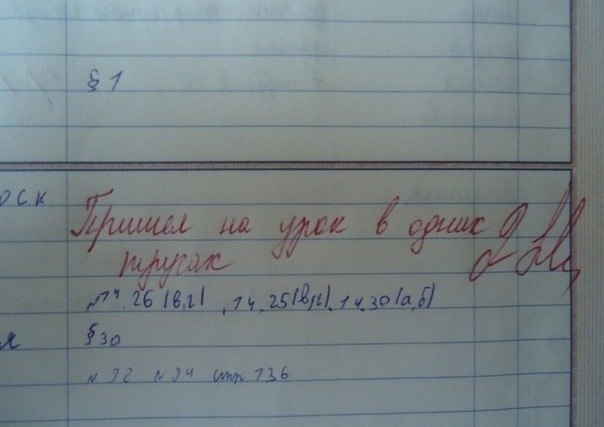 § 1
оск
Пришел на урок в одних 2
тругах
№14.26(в,г), 14.25(в,г), 14.30(а,б)
я
§30
№ 92 № 94 стр 136